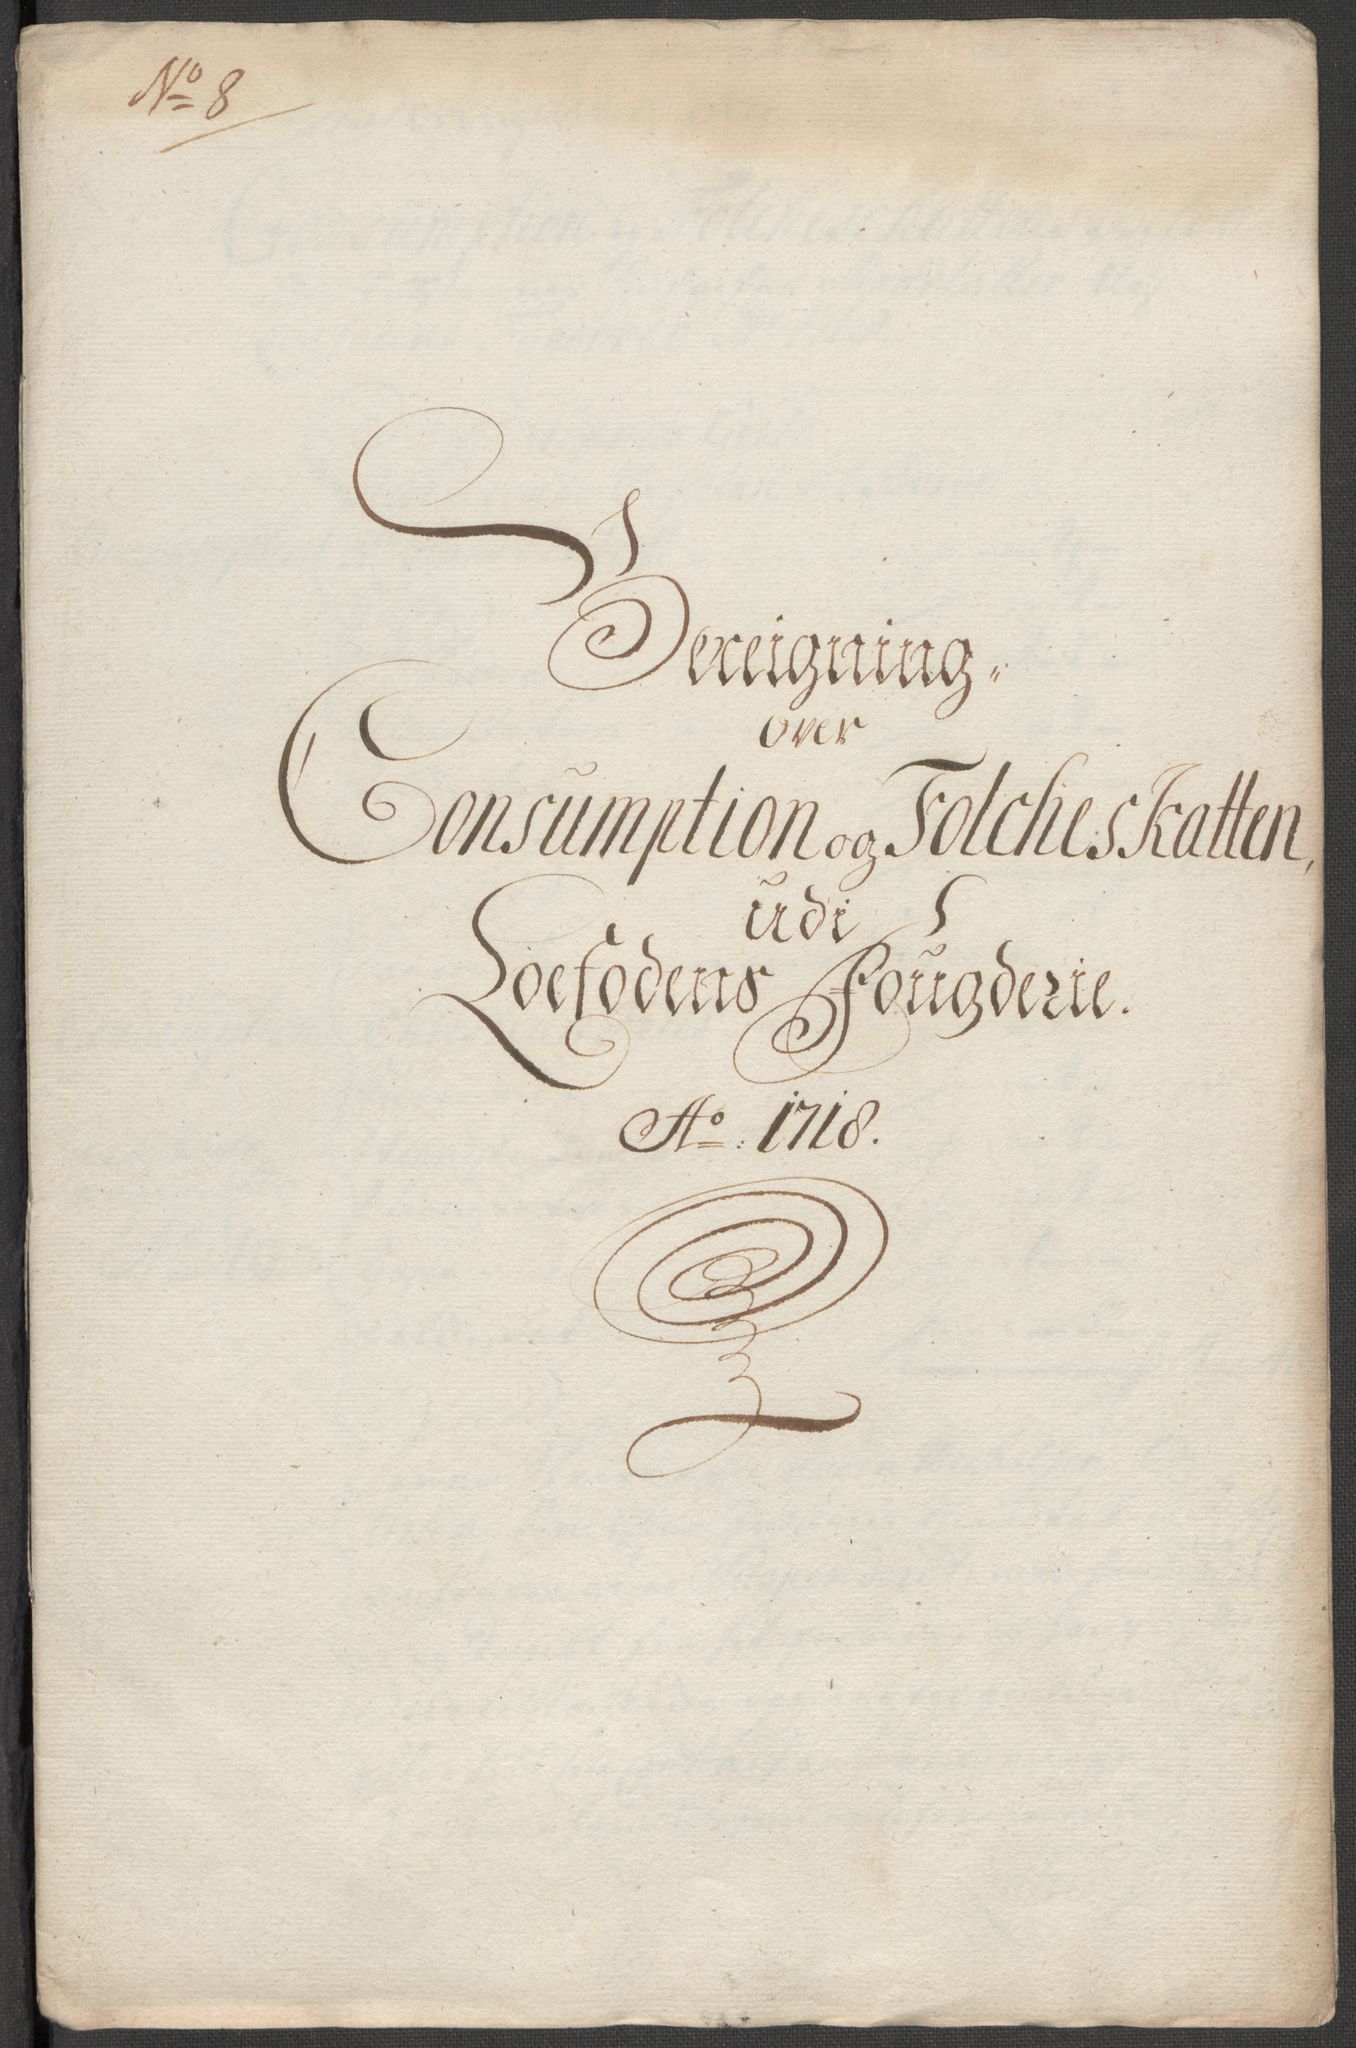 No 8
Bereigning
over
Consumption og Folcheskatten,
udi
Loefodens Fougderie.
Ao: 1718.